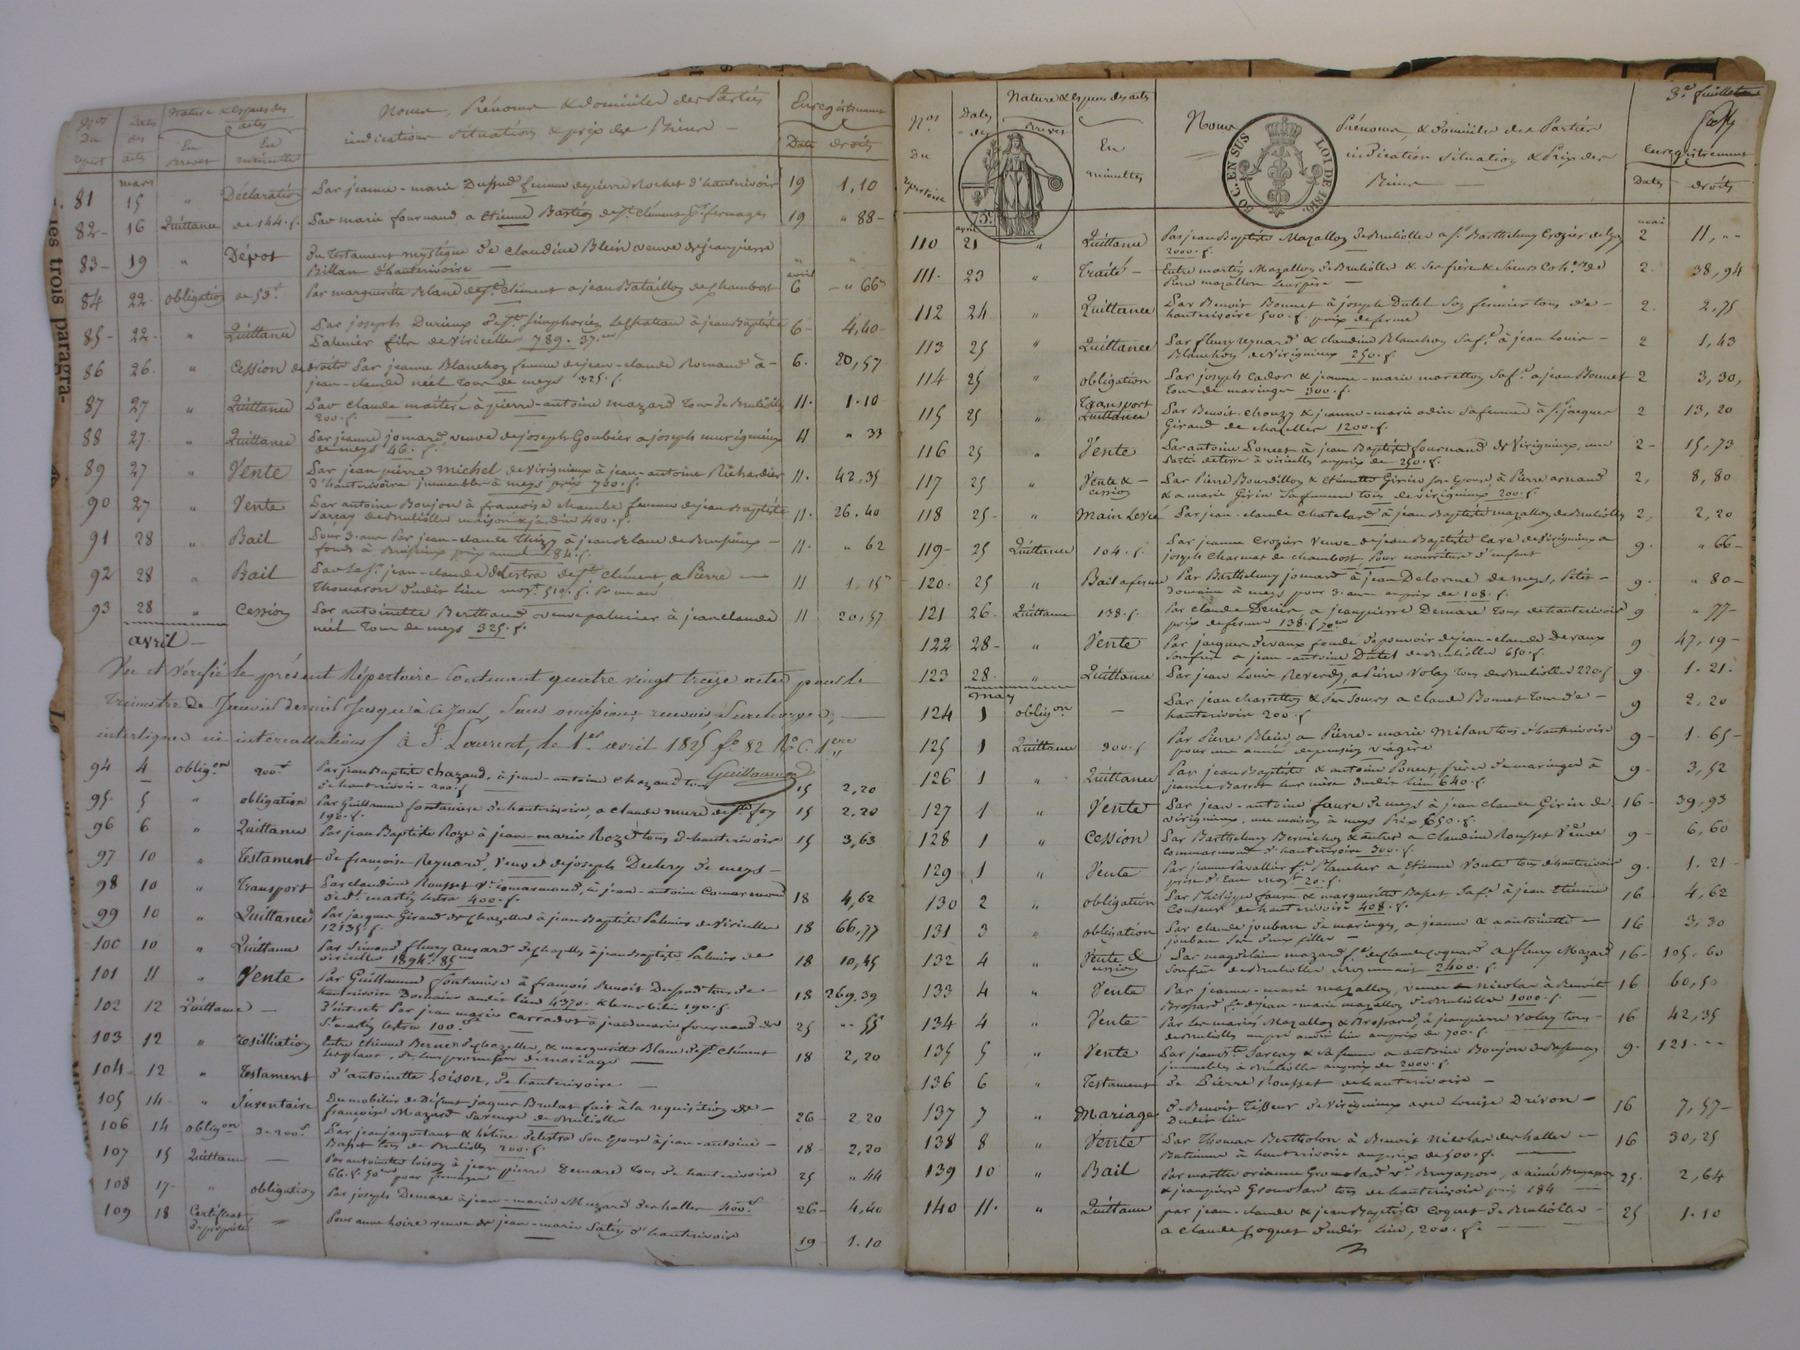 Nos Du répert
Dates des actes
Nature & espèces des actes
En Brevet
En minutte
Noms, Prénoms & domiciles des Parties
indication situation & prix des Biens —
Enregistrement
Date droits
mars
81 15 " Déclaration Par jeanne-marie femme de pierre Rochet d'hauterivoire 19 1,10
82 16 Quittance de 144.f. Par marie fournand a Etienne Bastion de St. Clément 19 " 88
83 19 " Dépot Du testament mystique De claudine Blein veuve de jeanpierre " "
Billan d'hauterivoire —
avril
84 22 obligation de 53.f Par margueritte Blanc de St. Clément a jean Bataillon de chambost 6 " 66
85 22 " Quittance Par joseph Durieux de St. Simphorien à jean Baptiste 6 4,40
Palmier fils de Viricelles 789. 37.
86 26 " Cession de droits Par jeanne Blanchon femme de jean-claude Romand à 6 20,57
jean-claude néel tous de meys 325.f.
87 27 " Quittance Par claude à pierre-antoine mazard tous de Brulliolles 11 1.10
200.f.
88 27 " Quittance Par jeanne jomard, veuve de joseph Goubier a joseph 11 " 33
de meys 46.f.
89 27 " Vente Par jean pierre Michel de Virigneux à jean-antoine Richardier 11. 42,35
d'hauterivoire immeubles à meys prix 730.f.
90 27 " Vente Par antoine Bonjon à françoise chambe femme de jean Baptiste 11. 26.40
Sarçay de Brulliolles maison & jardin 400.f.
91 28 " Bail Pour 3. ans Par jean-claude Thizy à jean Blanc de Brussieux 11. " 62
fonds à Brussieux prix annuel 84.f.
92 28 " Bail Par jean-claude Delestra de St. Clément, a Pierre — 11 1,15
Thomaron dudit lieu 510.f. Par an
93 28 " Cession Par antoinette Berthaud veuve palmier à jean claude 11 20,57
néel Tous de meys 325.f.
avril —
Vu et Vérifié le présent Répertoire Contenant quatre vingt treize actes pour le
trimestre de Janvier dernier jusqu'à ce jour, Sans omissions, renvois, Surcharges,
interlignes ni intercallations / à St. Laurent, le 1er avril 1825 fo. 82 Ro. C. 1ere
Guillermin
94 4 oblig.on 200.f Par jean Baptiste Chazaud, à jean-antoine Chazaud tous 15 2,20
d'hauterivoire 200.f
95 5 " obligation Par Guillaume fontaniere d'hauterivoire, a claude mure de Ste. foy 15 2,20
190.f.
96 6 " Quittance Par jean Baptiste Roze à jean-marie Roze tous d'hauterivoire 15 3,63
97 10 " Testament De françoise Reynard, veuve de joseph de meys —
98 10 " Transport Par claudine Rousset Ve. Comarmond, à jean-antoine Comarmond 18 4,62
de St. martin lestra 400.f.
99 10 " Quittance Par jacques Girard de Chazelles à jean Baptiste Palmier de Viricelles 18 66,77
12135.f.
100 10 " Quittance Par Simond fleury de Chazelles à jean Baptiste Palmier de 18 10,45
viricelles 1894. 85.
101 11 " Vente Par Guillaume fontaniere à françois Benoit tous de 18 269,39
hauterivoire Domaine audit lieu 4370. & le mobilier 190.f.
102 12 Quittance — D'intérêts Par jean marie à jean marie fournand de 25 " 55
St. martin lestra 100.f.
103 12 " résilliation Entre étienne Berne de Chazelles, & margueritte Blanc de St. Clément 18 2,20
les places, de leur promesse de mariage —
104 12 " Testament d'antoinette Loison, de hauterivoire —
105 14 " Inventaire Du mobilier de Défunt jaques fait à la réquisition de — 26 2,20
françoise Mazard Sa veuve de Brulliolles
106 14 oblig.on de 200.f Par jean jacques & hélène Delestra Son épouse à jean-antoine — 18 2,20
Bapst tous de Brulliolles 200.f.
107 15 Quittance — Par antoinette Loison à jean pierre Demare tous de hauterivoire 25 " 44
66.f. 50. pour fermages
108 17 " obligation Par joseph Demare à jean-marie Mazard des halles 400.f 26 4,40
109 18 Certificat De propriété Pour anne hoire veuve de jean-marie d'hauterivoire 19 1.10
3e. feuillet
Nos du repertoire
Dates des
Nature & espèces des actes
Brevet
En minuttes
75c.
50 C. EN SUS LOI DE 1816.
Noms Prénoms & Domiciles des Parties
indication situation & Prix des
Biens —
Enregistrement
Dates droits
avril
mai
110 21 " Quittance Par jean Baptiste Mazallon de Brulliolles a Sr. Barthelemy Crozier de 2 11, "
2000.f.
111 23 " Traité — Entre martin Mazallon de Brulliolles & Ses frère & Soeurs Cohers. de 2 38,94
Pierre mazallon leur père —
112 24 " Quittance Par Benoit Bonnet à joseph Dutel Son fermier tous de — 2. 2,75
hauterivoire 500.f prix de ferme
113 25 " Quittance Par fleury reynard & claudine Blanchon Sa fe. à jean Louis — 2 1,43
Blanchon de Virigneux 250.f.
114 25 " obligation Par joseph Cador & jeanne-marie maretton Sa fe. a jean Bonnet 2 3,30
tous de maringes 300.f.
115 25 " Transport Quittance Par Benoit Chouzy & jeanne-marie odin Sa femme à Sr. jacques 2 13,20
Girard de chazelles 1200.f.
116 25 " Vente Par antoine Poncet à jean Baptiste fournand de Virigneux, une 2 15,73
partie de terre à viricelles au prix de 250.f.
117 25 " Vente & cession Par Pierre Bourdillon & Etiennette Girin son épouse à Pierre arnaud 2 8,80
& a marie Girin Sa femme tous de virigneux 200.f.
118 25 " Main Levée Par jean-claude Chatelard à jean Baptiste mazallon de Brulliolles 2 2,20
119 25 Quittance 104.f. Par jeanne Crozier veuve de jean Baptiste Cave de Virigneux a 9. " 66
joseph Charmat de chambost Pour nourriture d'enfant
120 25 " Bail a ferme Par Barthelemy jomard à jean Delorme de meys, Petit — 9. " 80
Domaine à meys pour 3. ans au prix de 108.f.
121 26 Quittance 138.f. Par claude Denis a jean pierre Demare tous de hauterivoire 9 " 77
prix de ferme 138.f 70
122 28 " Vente Par jacques Devaux fondé de pouvoir de jean-claude Devaux 9 47,19
Son frère a jean-antoine Dutel de Brulliolles 650.f.
123 28 " Quittance Par jean Louis Reverdy, a Pierre Volay tous de Brulliolles 220.f 9. 1.21.
may
124 1 oblig.on — Par jean charretton & Ses Soeurs a claude Bonnet tous de — 9 2,20
hauterivoire 200.f
125 1 Quittance 300.f Par Pierre Blein a Pierre-marie Milan tous d'hauterivoire 9 1.65
pour une année de pension viagère
126 1 " Quittance Par jean Baptiste & antoine Poncet, frères de maringes à 9 3,52
jeanne Barret leur mère dudit lieu 640.f.
127 1 " Vente Par jean-antoine faure de meys à jean claude Girin de 16 39,93
virigneux, une maison à meys prix 650.f.
128 1 " Cession Par Barthelemy & autres a Claudine Rousset Veuve 9 6,60
Commarmond d'hauterivoire 300.f.
129 1 " Vente Par jeanne Cavallier a Etienne Vente tous d'hauterivoire 9. 1.21
prise d'eau moy.t 20.f.
130 2 " obligation Par Philippe faure & margueritte Bapst Sa fe. à jean étienne 16 4,62
Couteur de hauterivoire 408.f.
131 3 " obligation Par claude joubard de maringes, a jeanne & antoinette — 16 3,30
joubard Ses deux filles
132 4 " Vente & cession Par magdelaine mazard fe. de claude Coquard a fleury Mazard 16 105.60
Son frère de Brulliolles 2400.f.
133 4 " Vente Par jeanne-marie mazallon, veuve Nicolas à Benoite 16 60,50
Brossard fe. de jean-marie mazallon de Brulliolles 1000.f.
134 4 " Vente Par Les mariés Mazallon & Brossard à jean pierre Volay tous — 16 42,35
de Brulliolles audit lieu au prix de 700.f.
135 5 " Vente Par jean Bte. Sarcay & Sa femme a antoine Bonjon de 9. 121.
immeubles à Brulliolles au prix de 2000.f.
136 6 " Testament De Pierre Rousset de hauterivoire —
137 7 " Mariage De Benoit Tisseur de Virigneux avec Louise Drivon — 16 7,57
Dudit lieu
138 8 " Vente Par Thomas Bertholon à Benoit Nicolas des halles — 16 30,25
Batiment à hauterivoire au prix de 500.f.
139 10 " Bail Par marthe orianne Gromolard Ve. Bruyasson, a aimé Bruyasson 25. 2,64
& jean pierre Gromolard tous de hauterivoire prix 184
140 11. " Quittance par jean-claude & jean Baptiste Coquet de Brulliolles — 25 1.10
a claude Coquet dudit lieu, 200.f.